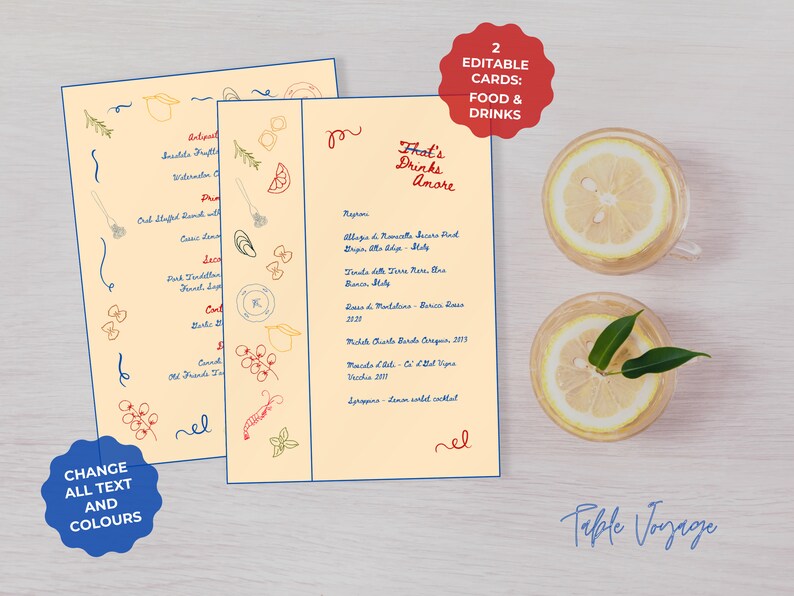 2
EDITABLE
CARDS:
FOOD &
DRINKS
Antipast
Insalata Frutt
Watermelon C
Prim
Crab Stuffed Ravioli with
Cassic Lemon
Seco
Pork Tendetloin
Fennel, Sage
Cont
Garlic G
D
Cannol
Old Friends Ta
That's
Drinks
Amore
Negroni
Abbazia di Novacella Iscaro Pinot
Grigio, Alto Adige - Italy
Tenuta delle Terre Nere, Etna
Bianco, Italy
Rosso di Montalcino - Baricci Rosso
2020
Michele Chiarlo Barolo Cerequio, 2013
Moscato d'Asti - Ca' d'Gal Vigna
Vecchia 2011
Sgroppino - Lemon sorbet cocktail
CHANGE
ALL TEXT
AND
COLOURS
Table Voyage